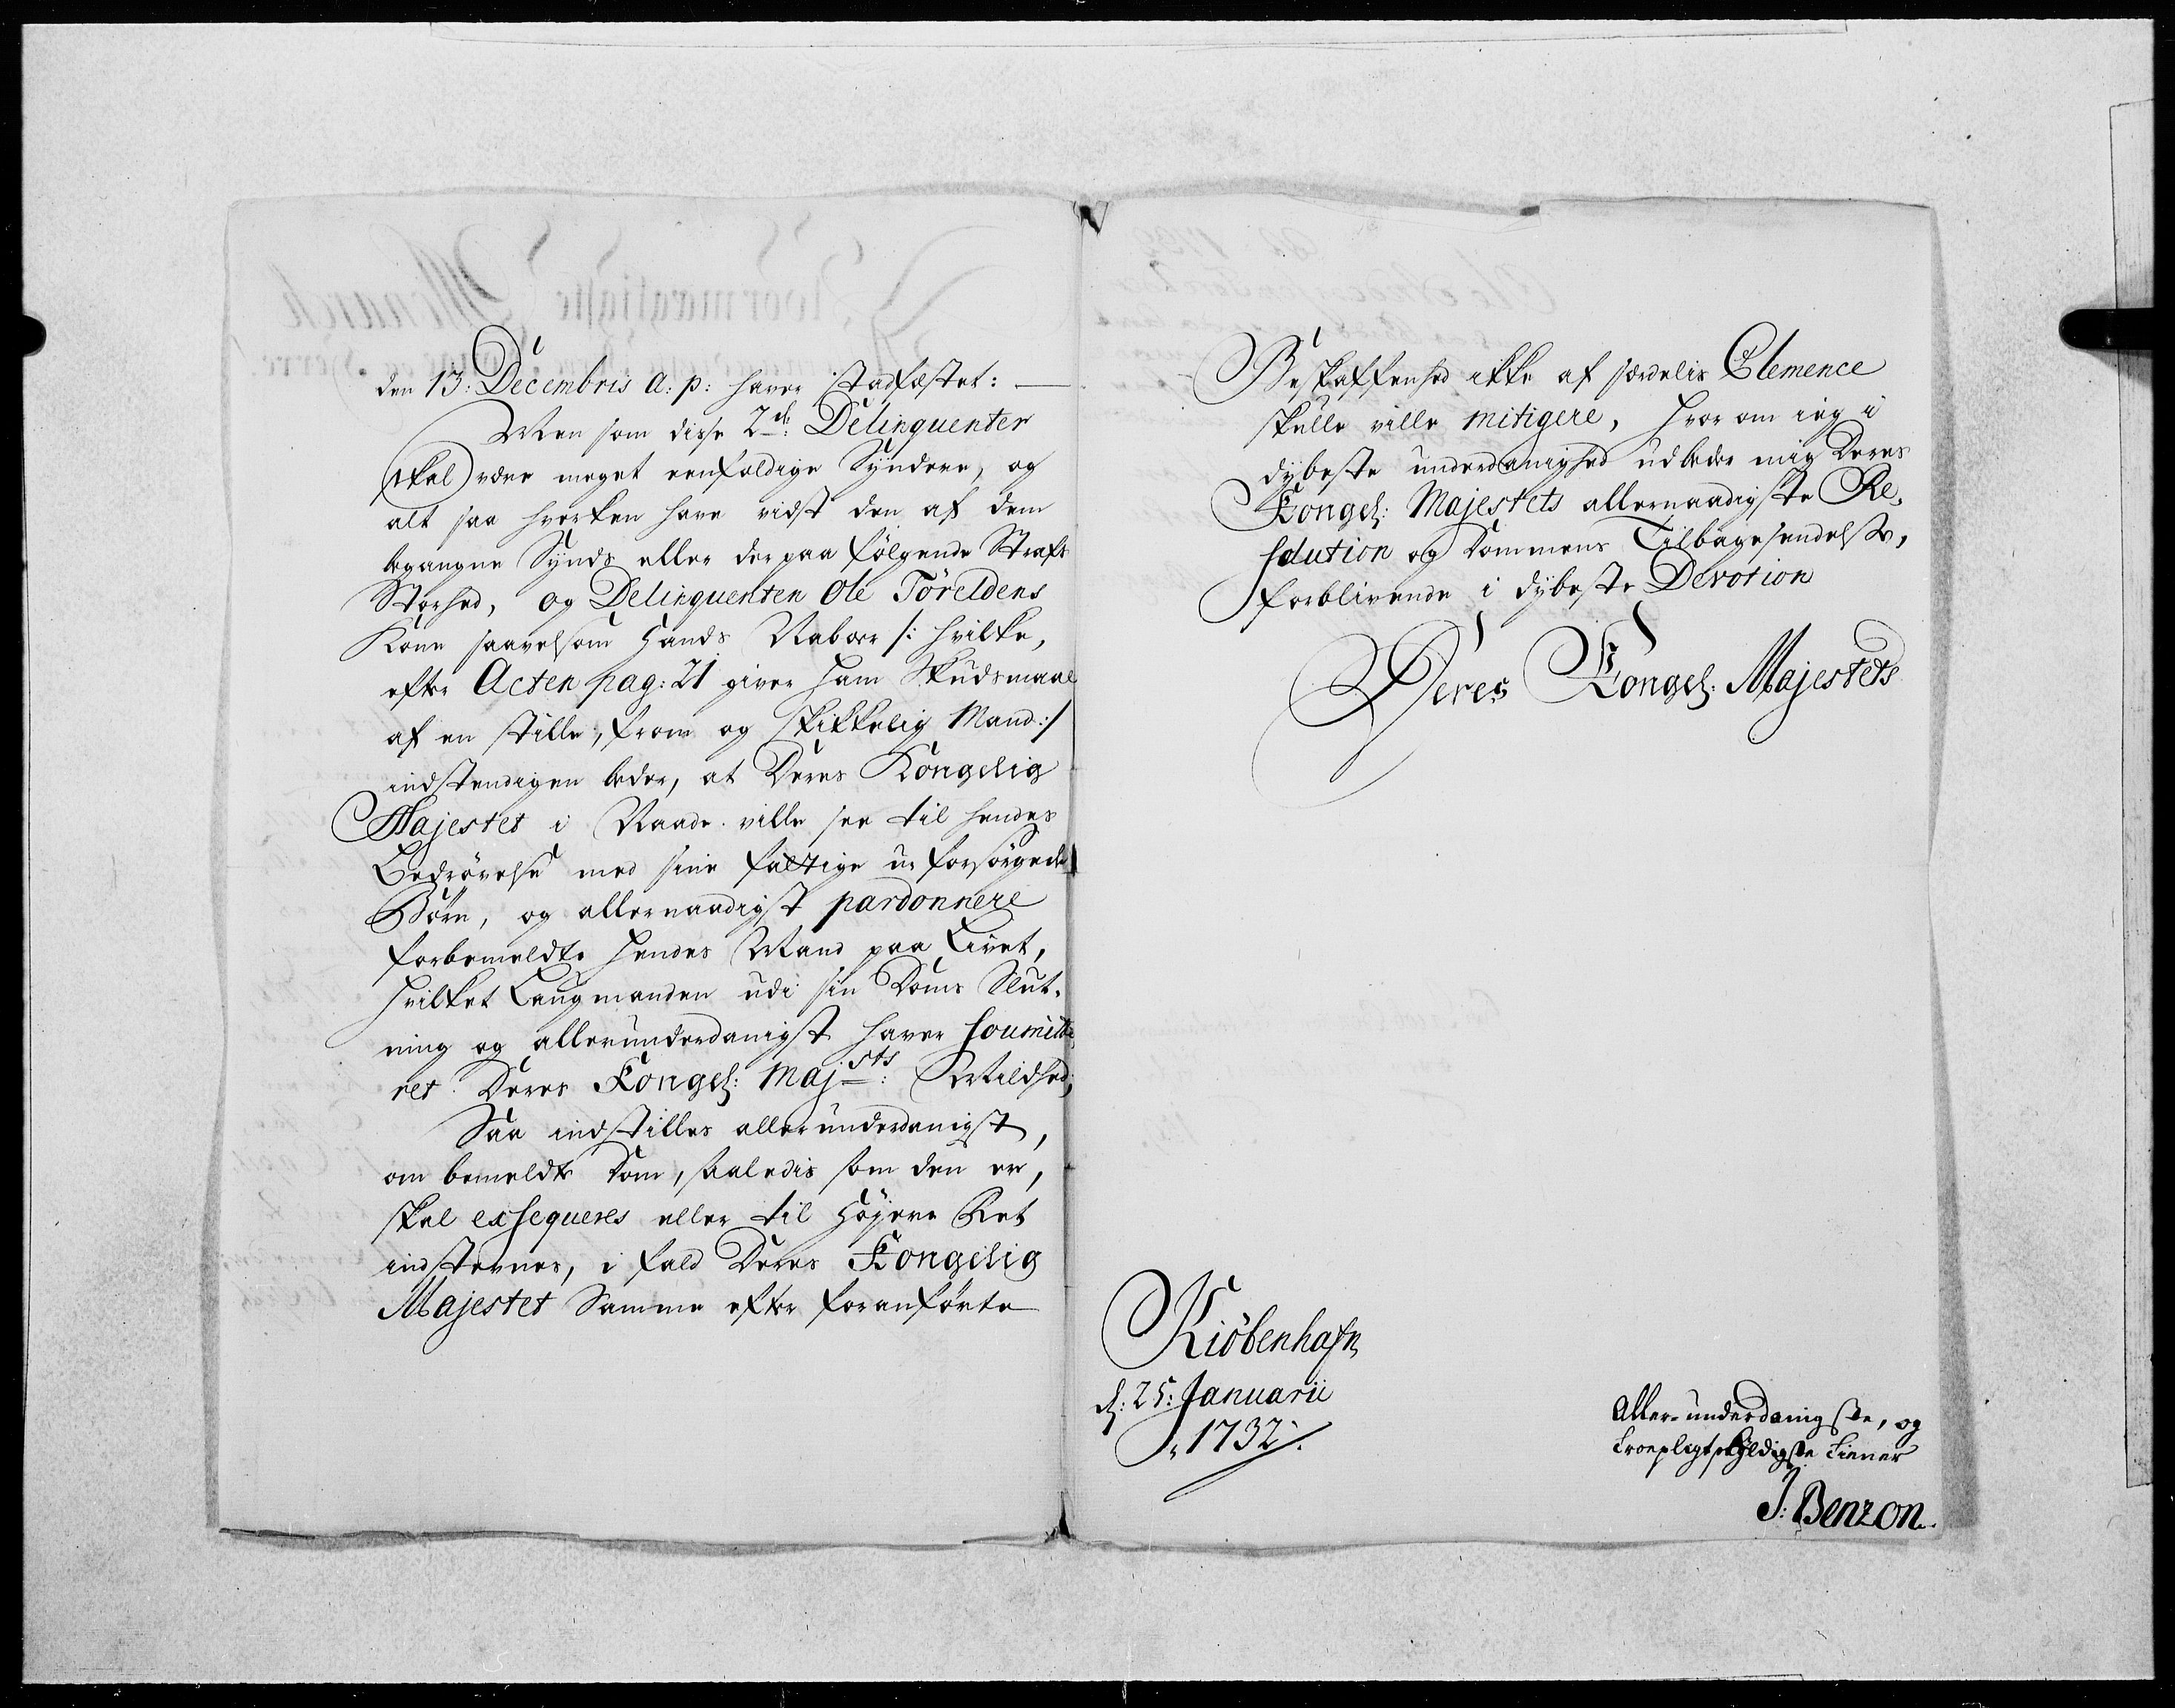 den 13: Decembris a: p: haver stadfæstet: —
Men som disse 2de: Delinquenter
skal være meget eenfoldige Syndere, og
alt saa hverken have vidst den af dem
begangne Synds eller derpaa følgende Strafs
Storhed, og Delinquenten Ole Töreldens
Kone saavelsom hands Naboer /: hvilke,
efter Acten pag: 21 giver ham Skudsmaal
af en stille, from og skikkelig Mand :/
indstendigen beder, at Deres Kongelig
Majestet i Naade ville see til hendes
Bedrøvelse med sine fattige u-forsørgede
Børn, og allernaadigst pardonnere
forbemeldte hendes Mand paa Livet,
hvilket Laugmanden udi sin Doms Slut-
ning og allerunderdanigst haver soumitte-
ret Deres Kongel: Majsts: Mildhed;
Saa indstilles allerunderdanigst,
om bemeldte Dom, saaledis som den er,
skal exsequeres eller til Höjere Ret
indstevnes, i fald Deres Kongelig
Majestet Samme efter foranførte
Beskaffenhed ikke af særdelis Clemence
skulle ville mitigere, hvor om ieg i
dybeste underdanighed udbeder mig Deres
Kongel: Majestets allernaadigste Re-
solution og Dommens Tilbagesendelse,
forblivende i dybeste Devotion
Deres Kongel: Majestets
Kiöbenhafn
d: 25: Januarii
1732.
Aller-underdanigste, og
troepligtskyldigste tiener
J: Benzon.